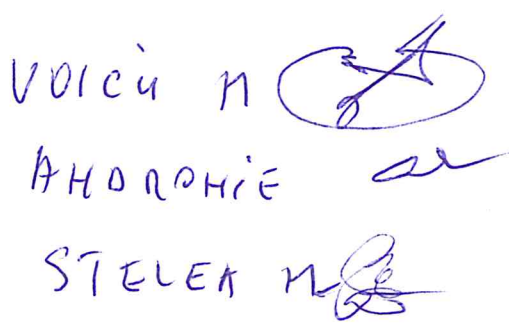 VOICU M
ANDRONIE
STELEA M